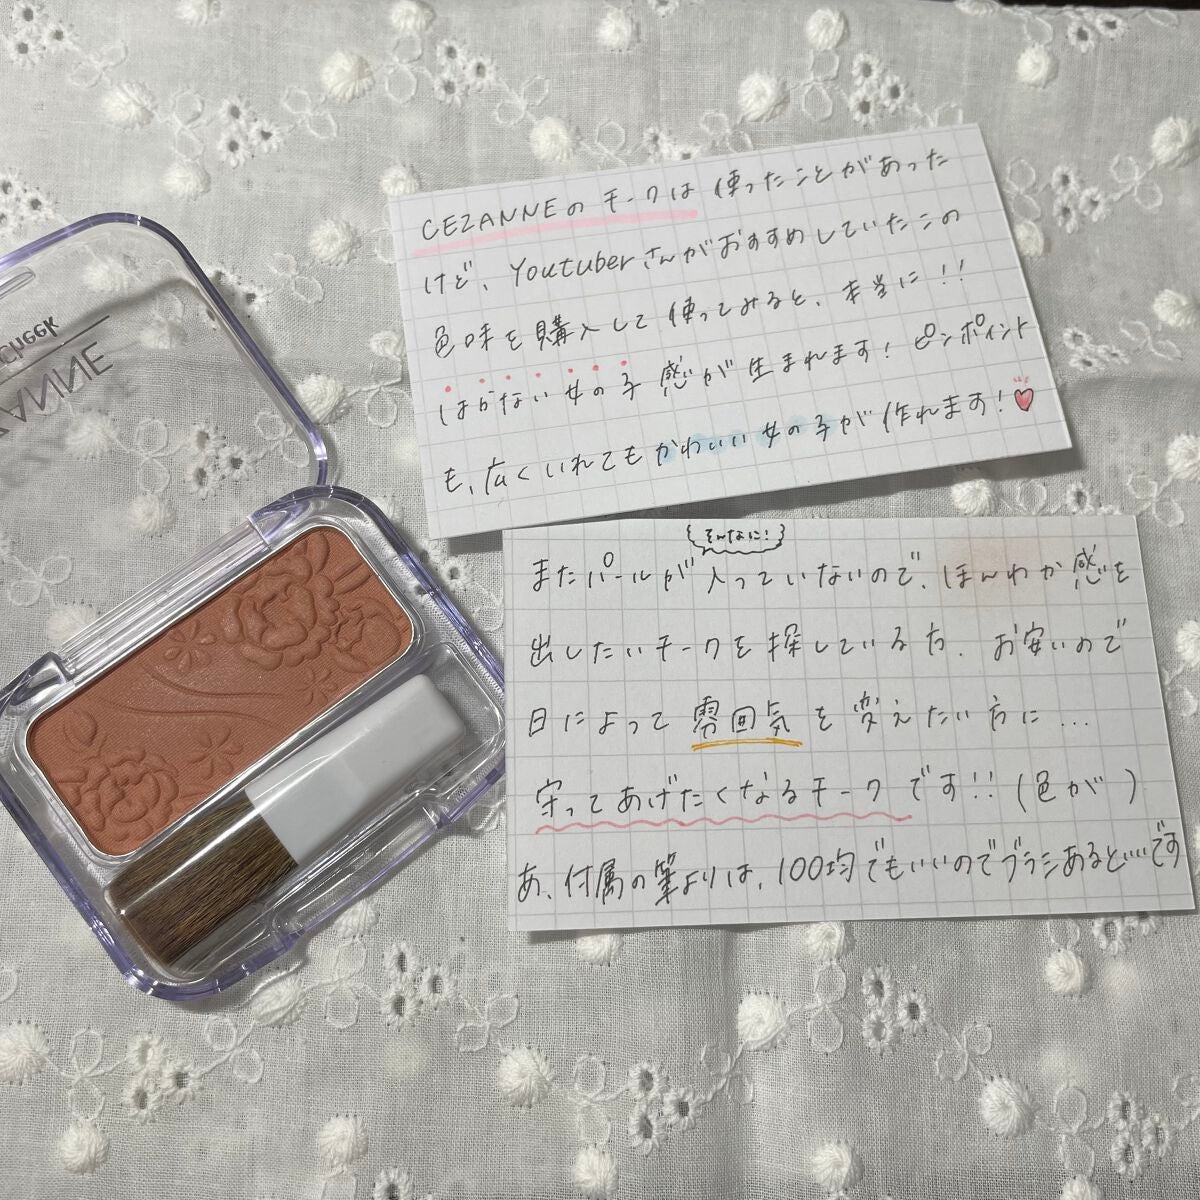 CEZANNEのチークは使ったことがあった
けど、Youtuberさんがおすすめしていたこの
色味を購入して使ってみると、本当に!!
はかない女の子感が生まれます! ピンポイント
も、広くいれてもかわいい女の子が作れます!
そんなに!
またパールが入っていないので、ほんわか感を
出したいチークを探している方、お安いので
日によって雰囲気を変えたい方に…
守ってあげたくなるチークです!!(色が)
あ、付属の筆よりは、100均でもいいのでブラシあると…です
Cheek
ZANNE